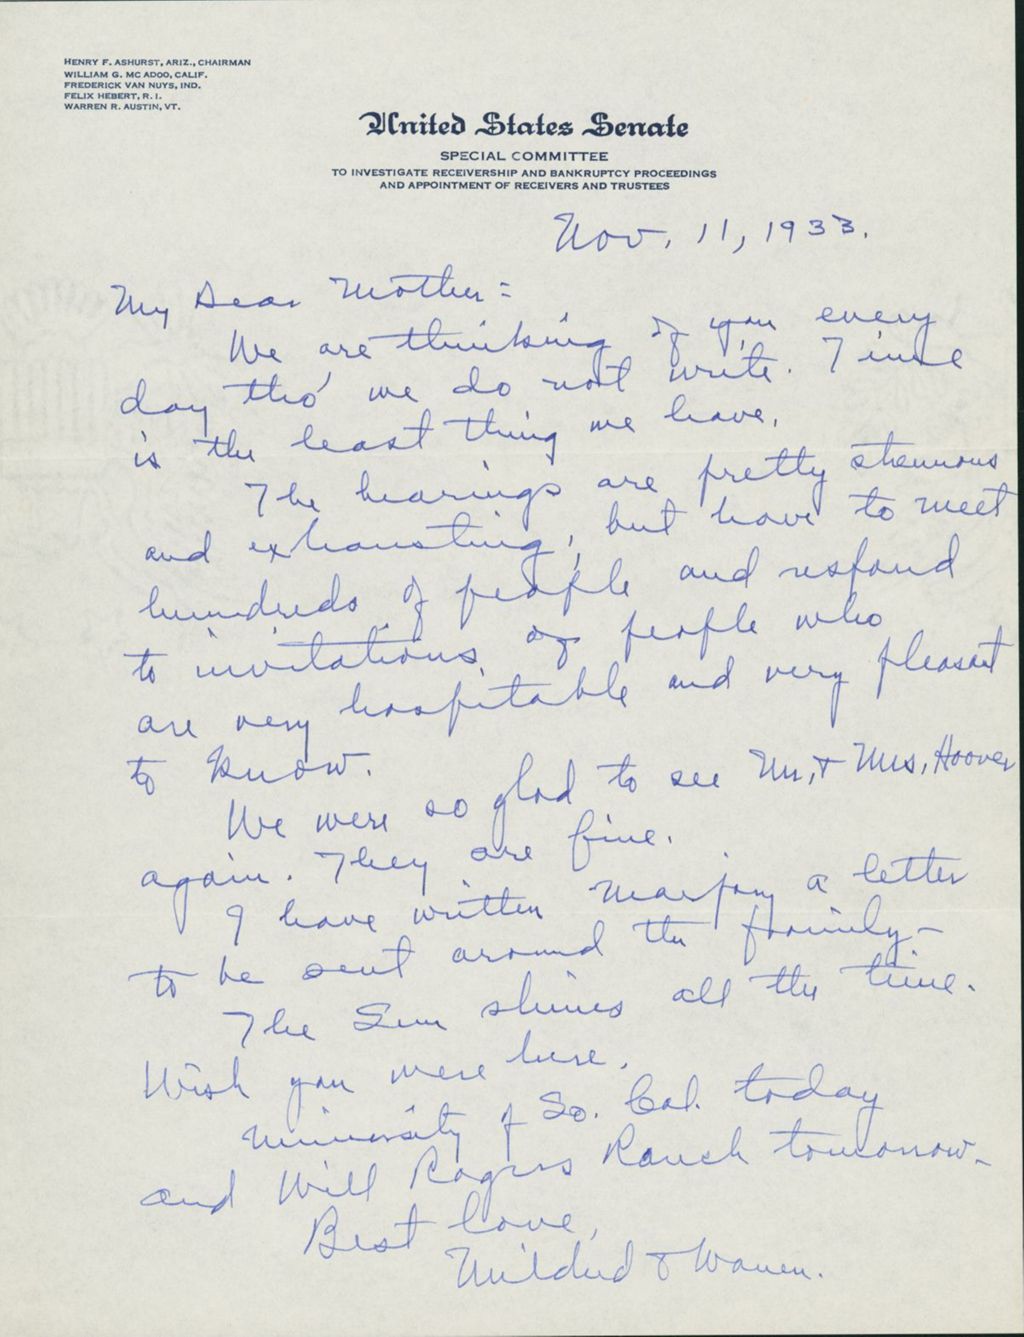 HENRY F. ASHURST, ARIZ., CHAIRMAN
WILLIAM G. MC ADOO, CALIF.
FREDERICK VAN NUYS, IND.
FELIX HEBERT, R. I.
WARREN R. AUSTIN, VT.
United States Senate
SPECIAL COMMITTEE
TO INVESTIGATE RECEIVERSHIP AND BANKRUPTCY PROCEEDINGS
AND APPOINTMENT OF RECEIVERS AND TRUSTEES
Nov. 11, 1933.
My Dear Mother =
We are thinking of you every
day tho' we do not write. Time
is the least thing we have.
The hearings are pretty strenuous
and exhausting, but have to meet
hundreds of people and respond
to invitations of people who
are very hospitable and very pleasant
to know.
We were so glad to see Mr. & Mrs. Hoover
again. They are fine.
I have written Marjory a letter
to be sent around the family –
The Sun shines all the time.
Wish you were here.
University of So. Cal. today
and Will Rogers Ranch tomorrow –
Best love,
Mildred & Warren.